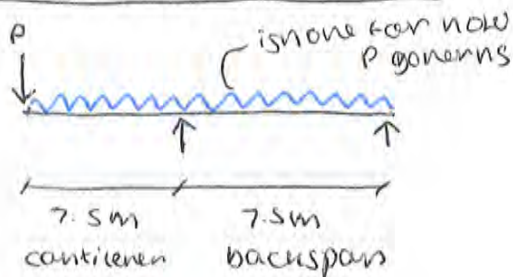 P
ignore for now
P governs
7.5m 7.5m
cantilever backspan